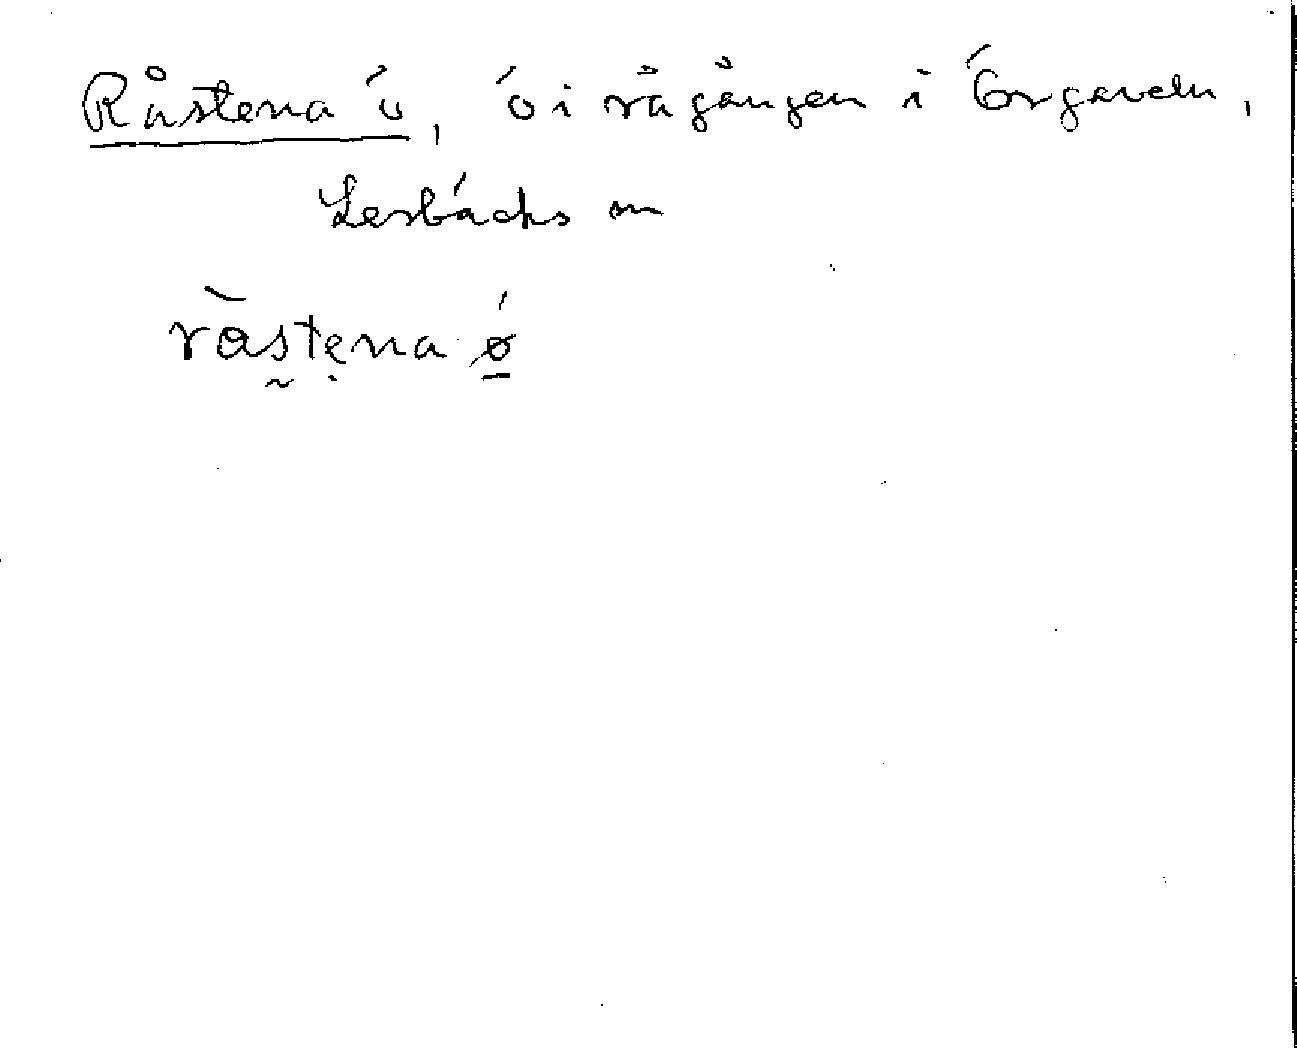 Råstena ö, ö i rågången i Örgaveln,
Lerbäcks sn
råstena ø